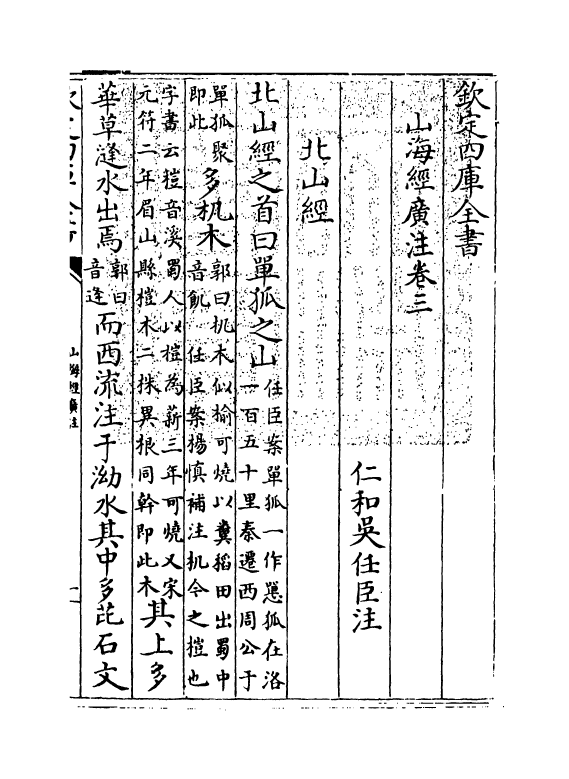 欽定四庫全書
山海經廣注卷三
仁和吳任臣注
北山經
北山經之首曰單狐之山任臣案單狐一作𢠸狐在洛一百五十里秦遷西周公于
單狐聚即此多机木郭曰机木似榆可燒以糞稻田出蜀中音飢 任臣案楊慎補注机今之榿也
字書云榿音溪蜀人以榿為薪三年可燒又宋元符二年眉山縣榿木二株異根同幹即此木其上多
華草漨水出焉郭曰音逢而西流注于泑水其中多芘石文
山海經廣注